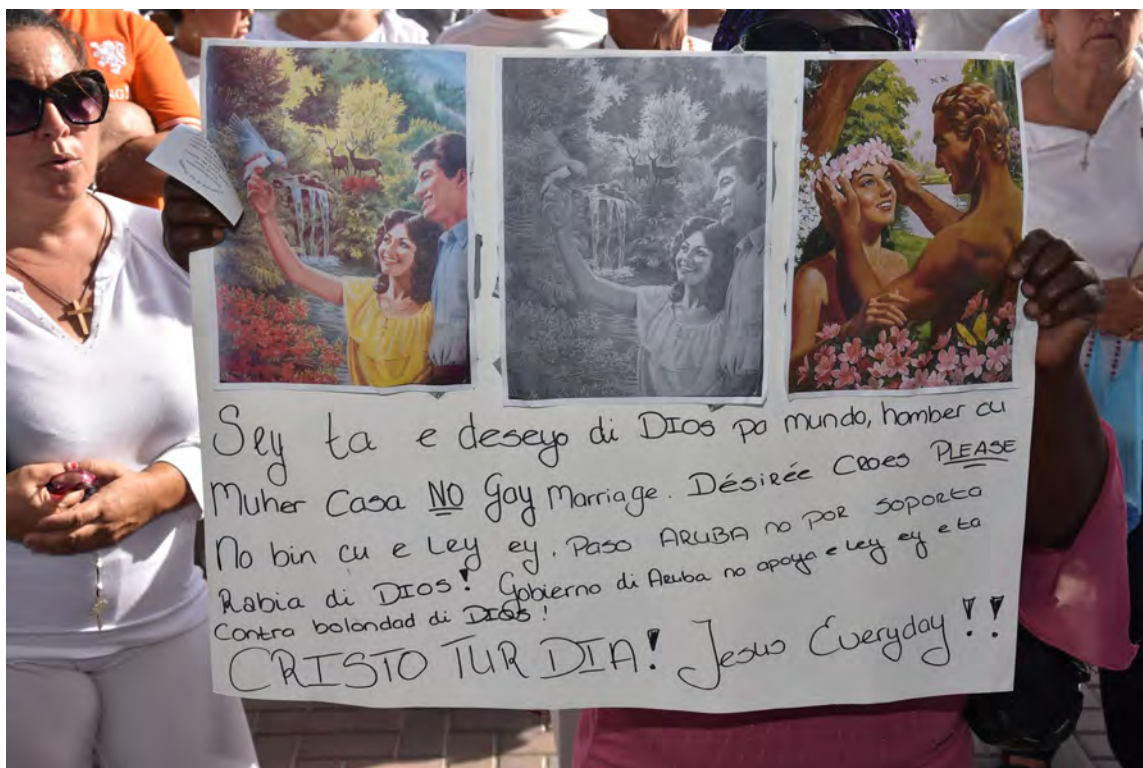 Sey ta e deseyo di DIOS pa mundo, homber cu
Muher Casa NO Gay Marriage. Désirée Croes PLEASE
No bin cu e Ley ey. Paso ARUBA no por soporta
Rabia di DIOS! Gobierno di Aruba no apoya e ley ey e ta
Contra bolondad di DIOS!
CRISTO TUR DIA! Jesus Everyday!!